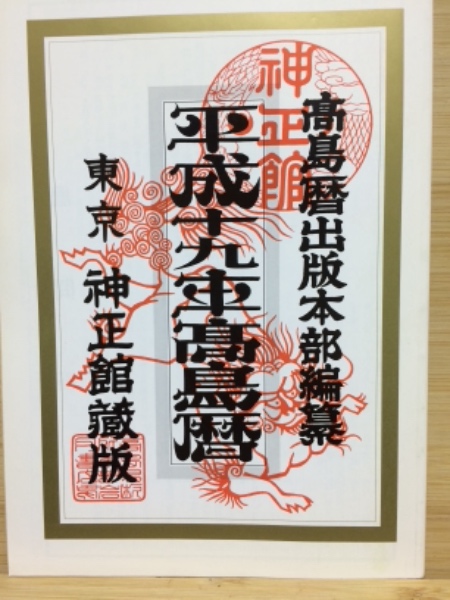 髙島暦出版本部編纂
神正館
平成十九年髙島暦
東京 神正館藏版